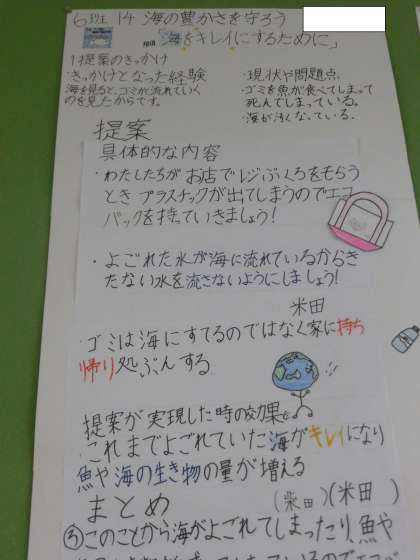 6班 14 海の豊かさを守ろう
「海をキレイにするために」
1提案のきっかけ
・きっかけとなった経験
海を見ると、ゴミが流れていく
のを見たからです。
・現状や問題点
・ゴミを魚が食べてしまって
死んでしまっている。
・海が汚くなっている。
提案
具体的な内容
・わたしたちがお店でレジぶくろをもらう
とき プラスチックが出てしまうのでエコ
バックを持っていきましょう!
・よごれた水が海に流れているからき
たない水を流さないようにしましょう!
米田
・ゴミは海にすてるのではなく家に持ち
帰り処ぶんする
提案が実現した時の効果
・これまでよごれていた海がキレイになり
魚や海の生き物の量が増える
まとめ
(柴田)(米田 )
③このことから海がよごれてしまったり、魚や